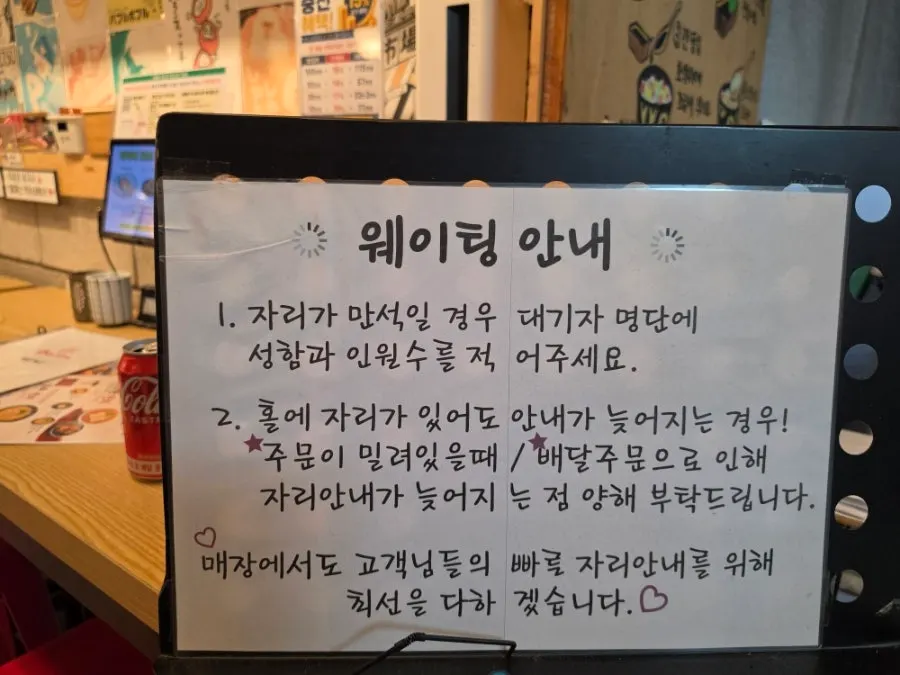 웨이팅 안내
1. 자리가 만석일 경우 대기자 명단에
성함과 인원수를 적 어주세요.
2. 홀에 자리가 있어도 안내가 늦어지는 경우!
★주문이 밀려있을때 / ★배달주문으로 인해
자리안내가 늦어지 는 점 양해 부탁드립니다.
♡
매장에서도 고객님들의 빠른 자리안내를 위해
최선을 다하 겠습니다.♡